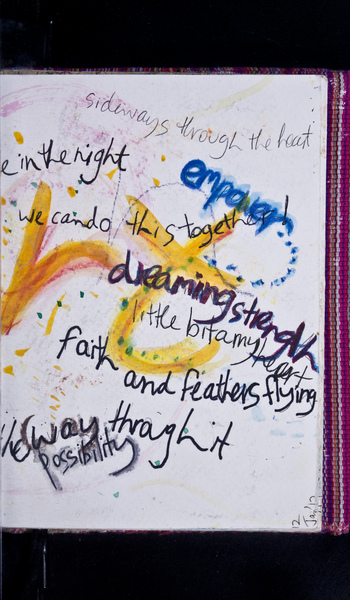 sideways through the heart
e in the night
empower
we can do this together!
dreaming strength
little bit a my heart
faith
and feathers flying
the way through it
possibility
12